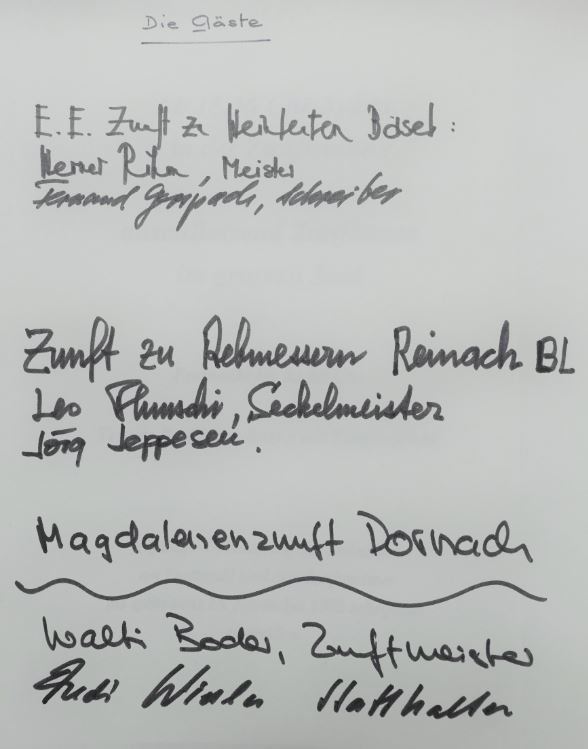 Die Gäste
E.E. Zunft zu Weinleuten Basel:
Werner Rihm, Meister
Fernand Gersbach, Schreiber
Zunft zu Rebmessern Reinach BL
Leo Plumski, Seckelmeister
Jörg Jeppesen.
Magdalenenzunft Dornach
Walti Boder, Zunftmeister
Statthalter